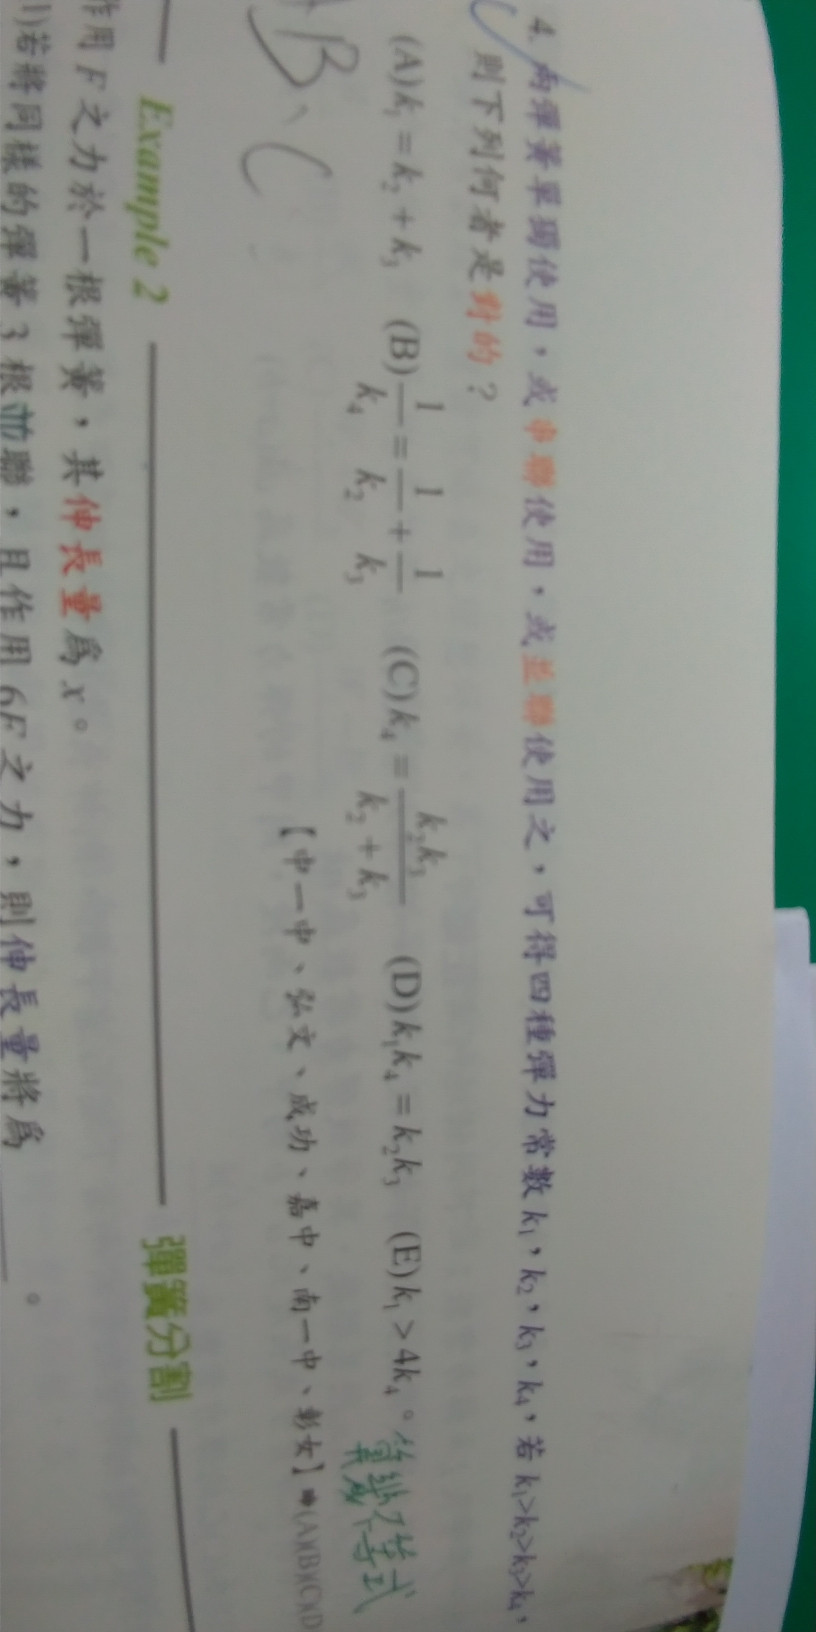 4. 兩彈簧單獨使用，或串聯使用，或並聯使用之，可得四種彈力常數 k₁，k₂，k₃，k₄，若 k₁>k₂>k₃>k₄，
則下列何者是對的？
(A) k₁ = k₂ + k₃ (B) 1/k₄ = 1/k₂ + 1/k₃ (C) k₄ = k₂k₃/(k₂ + k₃) (D) k₁k₄ = k₂k₃ (E) k₁ > 4k₄。
不等式
【中一中、弘文、成功、嘉中、南一中、彰女】➡(A)(B)(C)(D
B、C
Example 2
彈簧分割
作用 F 之力於一根彈簧，其伸長量為 x。
1)若將同樣的彈簧 3 根並聯，且作用 6F 之力，則伸長量將為 。